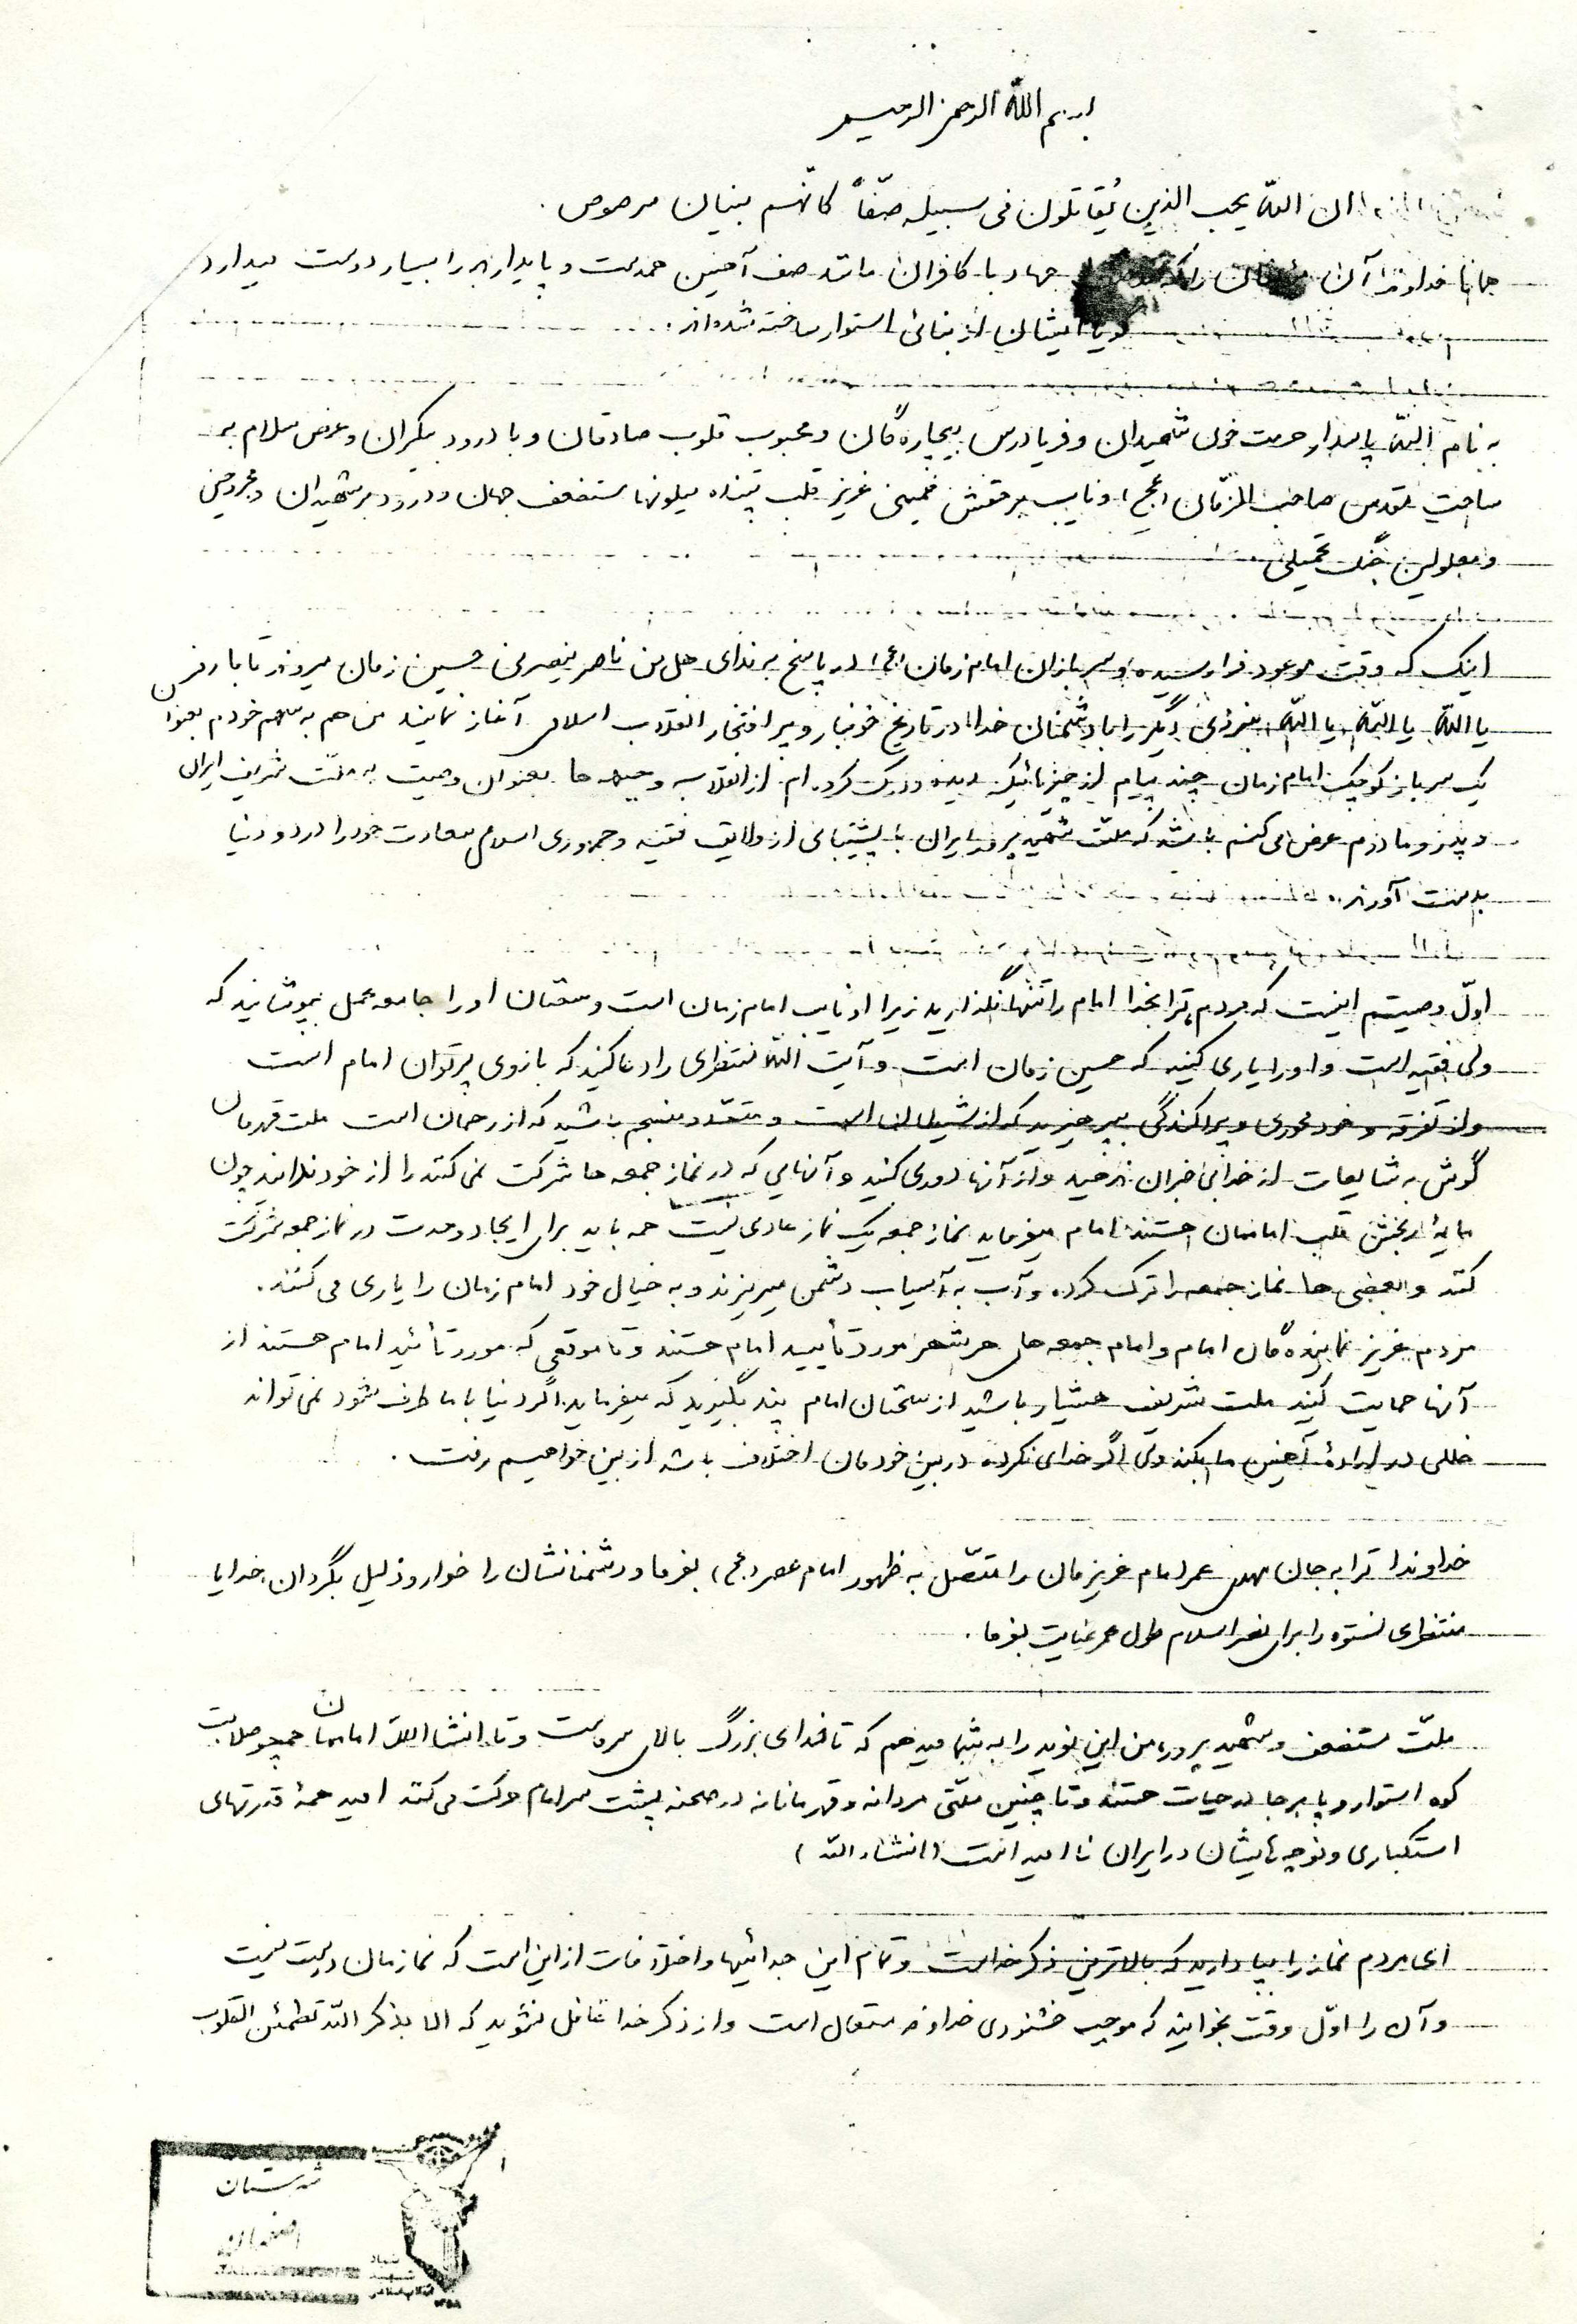 بسم الله الرحمن الرحیم
ان اللّه یحب الذین یُقاتلون فی سبیله صفّاً کانّهم بنیان مرصوص.
همانا خداوند آن مؤمنان را که جهاد با کافران مانند صف آهنین همدست و پایدارند را بسیار دوست میدارد
گویا ایشان از بنائی استوار ساخته شده‌اند.
به نام اللّه پاسدار حرمت خون شهیدان و فریادرس بیچاره‌گان و محبوب قلوب صادقان و با درود بیکران و عرض سلام به
ساحت مقدس صاحب الزّمان (عج) و نایب برحقش خمینی عزیز قلب تپنده میلونها مستضعف جهان و درود بر شهیدان و مجروحین
و معلولین جنگ تحمیلی
اینک که وقت موعود فرا رسیده و سربازان امام زمان (عج) در پاسخ به ندای هل من ناصر ینصرنی حسین زمان میروند تا با رمز
یا اللّه یا اللّه یا اللّه نبردی دیگر را با دشمنان خدا در تاریخ خونبار و پر افتخار انقلاب اسلامی آغاز نمایند من هم به سهم خودم بعنوان
یک سرباز کوچک امام زمان چند پیام از چیزهائیکه دیده و درک کرده‌ام از انقلاب و جبهه ها بعنوان وصیت به ملّت شریف ایران
و پدر و مادرم عرض می کنم باشد که ملّت شهید پرور ایران با پشتیبانی از ولایت فقیه و جمهوری اسلامی سعادت خود را در دو دنیا
بدست آورند.
اوّل وصیتم اینست که مردم ترا بخدا امام را تنها نگذارید زیرا او نایب امام زمان است و سخنان او را جامه عمل بپوشانید که
ولی فقیه است و او را یاری کنید که حسین زمان است و آیت اللّه منتظری را دعا کنید که بازوی پرتوان امام است
و از تفرقه و خود محوری و پراکندگی بپرهیزید که از شیطان است و متحد و منسجم باشید که از رحمان است ملت قهرمان
گوش به شایعات از خدا بی خبران ندهید و از آنها دوری کنید و آنهایی که در نماز جمعه ها شرکت نمی کنند را از خود ندانید چون
مایهٔ رنجش قلب اماممان هستند امام میفرماید نماز جمعه یک نماز عادی نیست همه باید برای ایجاد وحدت در نماز جمعه شرکت
کنند و بعضی ها نماز جمعه را ترک کرده و آب به آسیاب دشمن میریزند و به خیال خود امام زمان را یاری می کنند.
مردم عزیز نماینده‌گان امام و امام جمعه های هر شهر مورد تأیید امام هستند و تا موقعی که مورد تأئید امام هستند از
آنها حمایت کنید ملت شریف هشیار باشید از سخنان امام پند بگیرید که میفرماید اگر دنیا با ما طرف شود نمی تواند
خللی در ارادهٔ آهنین ما بکند ولی اگر خدای نکرده در بین خودمان اختلاف باشد از بین خواهیم رفت.
خداوندا ترا به جان مهدی عمر امام عزیزمان را متّصل به ظهور امام عصر (عج) بفرما و دشمنانشان را خوار و ذلیل بگردان خدایا
منتظری نستوه را برای نصر اسلام طول عمر عنایت بفرما.
ملّت مستضعف و شهید پرور من این نوید را به شما میدهم که تا خدای بزرگ بالای سر ماست و تا انشاالله اماممان همچو صلابت
کوه استوار و پابرجا در حیات هستند و تا چنین ملّتی مردانه و قهرمانانه در صحنه پشت سر امام حرکت می کنند امید همهٔ قدرتهای
استکباری و نوچه هایشان در ایران نا امید است (انشاء الله)
ای مردم نماز را بپا دارید که بالاترین ذکر خداست و تمام این جدائیها و اختلافات از این است که نمازمان درست نیست
و آن را اوّل وقت بخوانید که موجب خشنودی خداوند متعال است و از ذکر خدا غافل نشوید که الا بذکر اللّه تطمئن القلوب
شهرستان